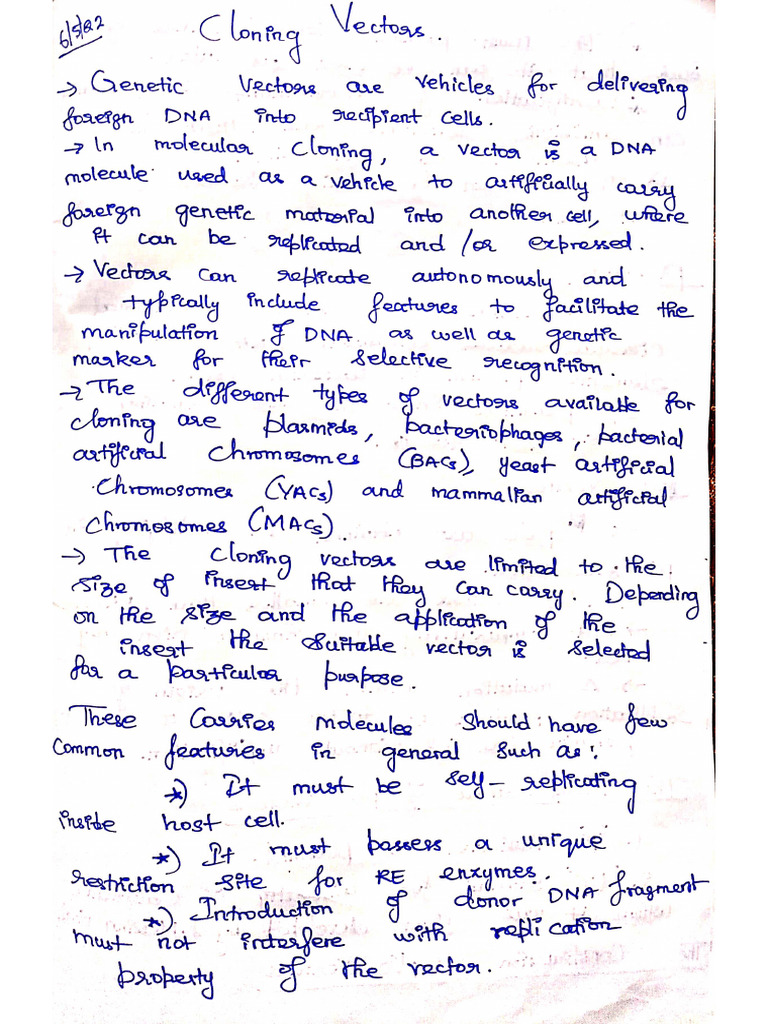 6/5/22
Cloning Vectors.
→ Genetic vectors are vehicles for delivering
foreign DNA into recipient cells.
→ In molecular cloning, a vector is a DNA
molecule used as a vehicle to artificially carry
foreign genetic material into another cell, where
it can be replicated and /or expressed.
→ Vectors can replicate autonomously and
typically include features to facilitate the
manipulation of DNA as well as genetic
marker for their selective recognition.
→ The different types of vectors available for
cloning are plasmids, bacteriophages, bacterial
artificial chromosomes (BACs), yeast artificial
chromosomes (YACs) and mammalian artificial
chromosomes (MACs)
→ The cloning vectors are limited to the
size of insert that they can carry. Depending
on the size and the application of the
insert the suitable vector is selected
for a particular purpose.
These Carries molecules should have few
common features in general such as:
*) It must be self-replicating
inside host cell.
*) It must possess a unique
restriction site for RE enzymes.
*) Introduction of donor DNA fragment
must not interfere with replication
property of the vector.